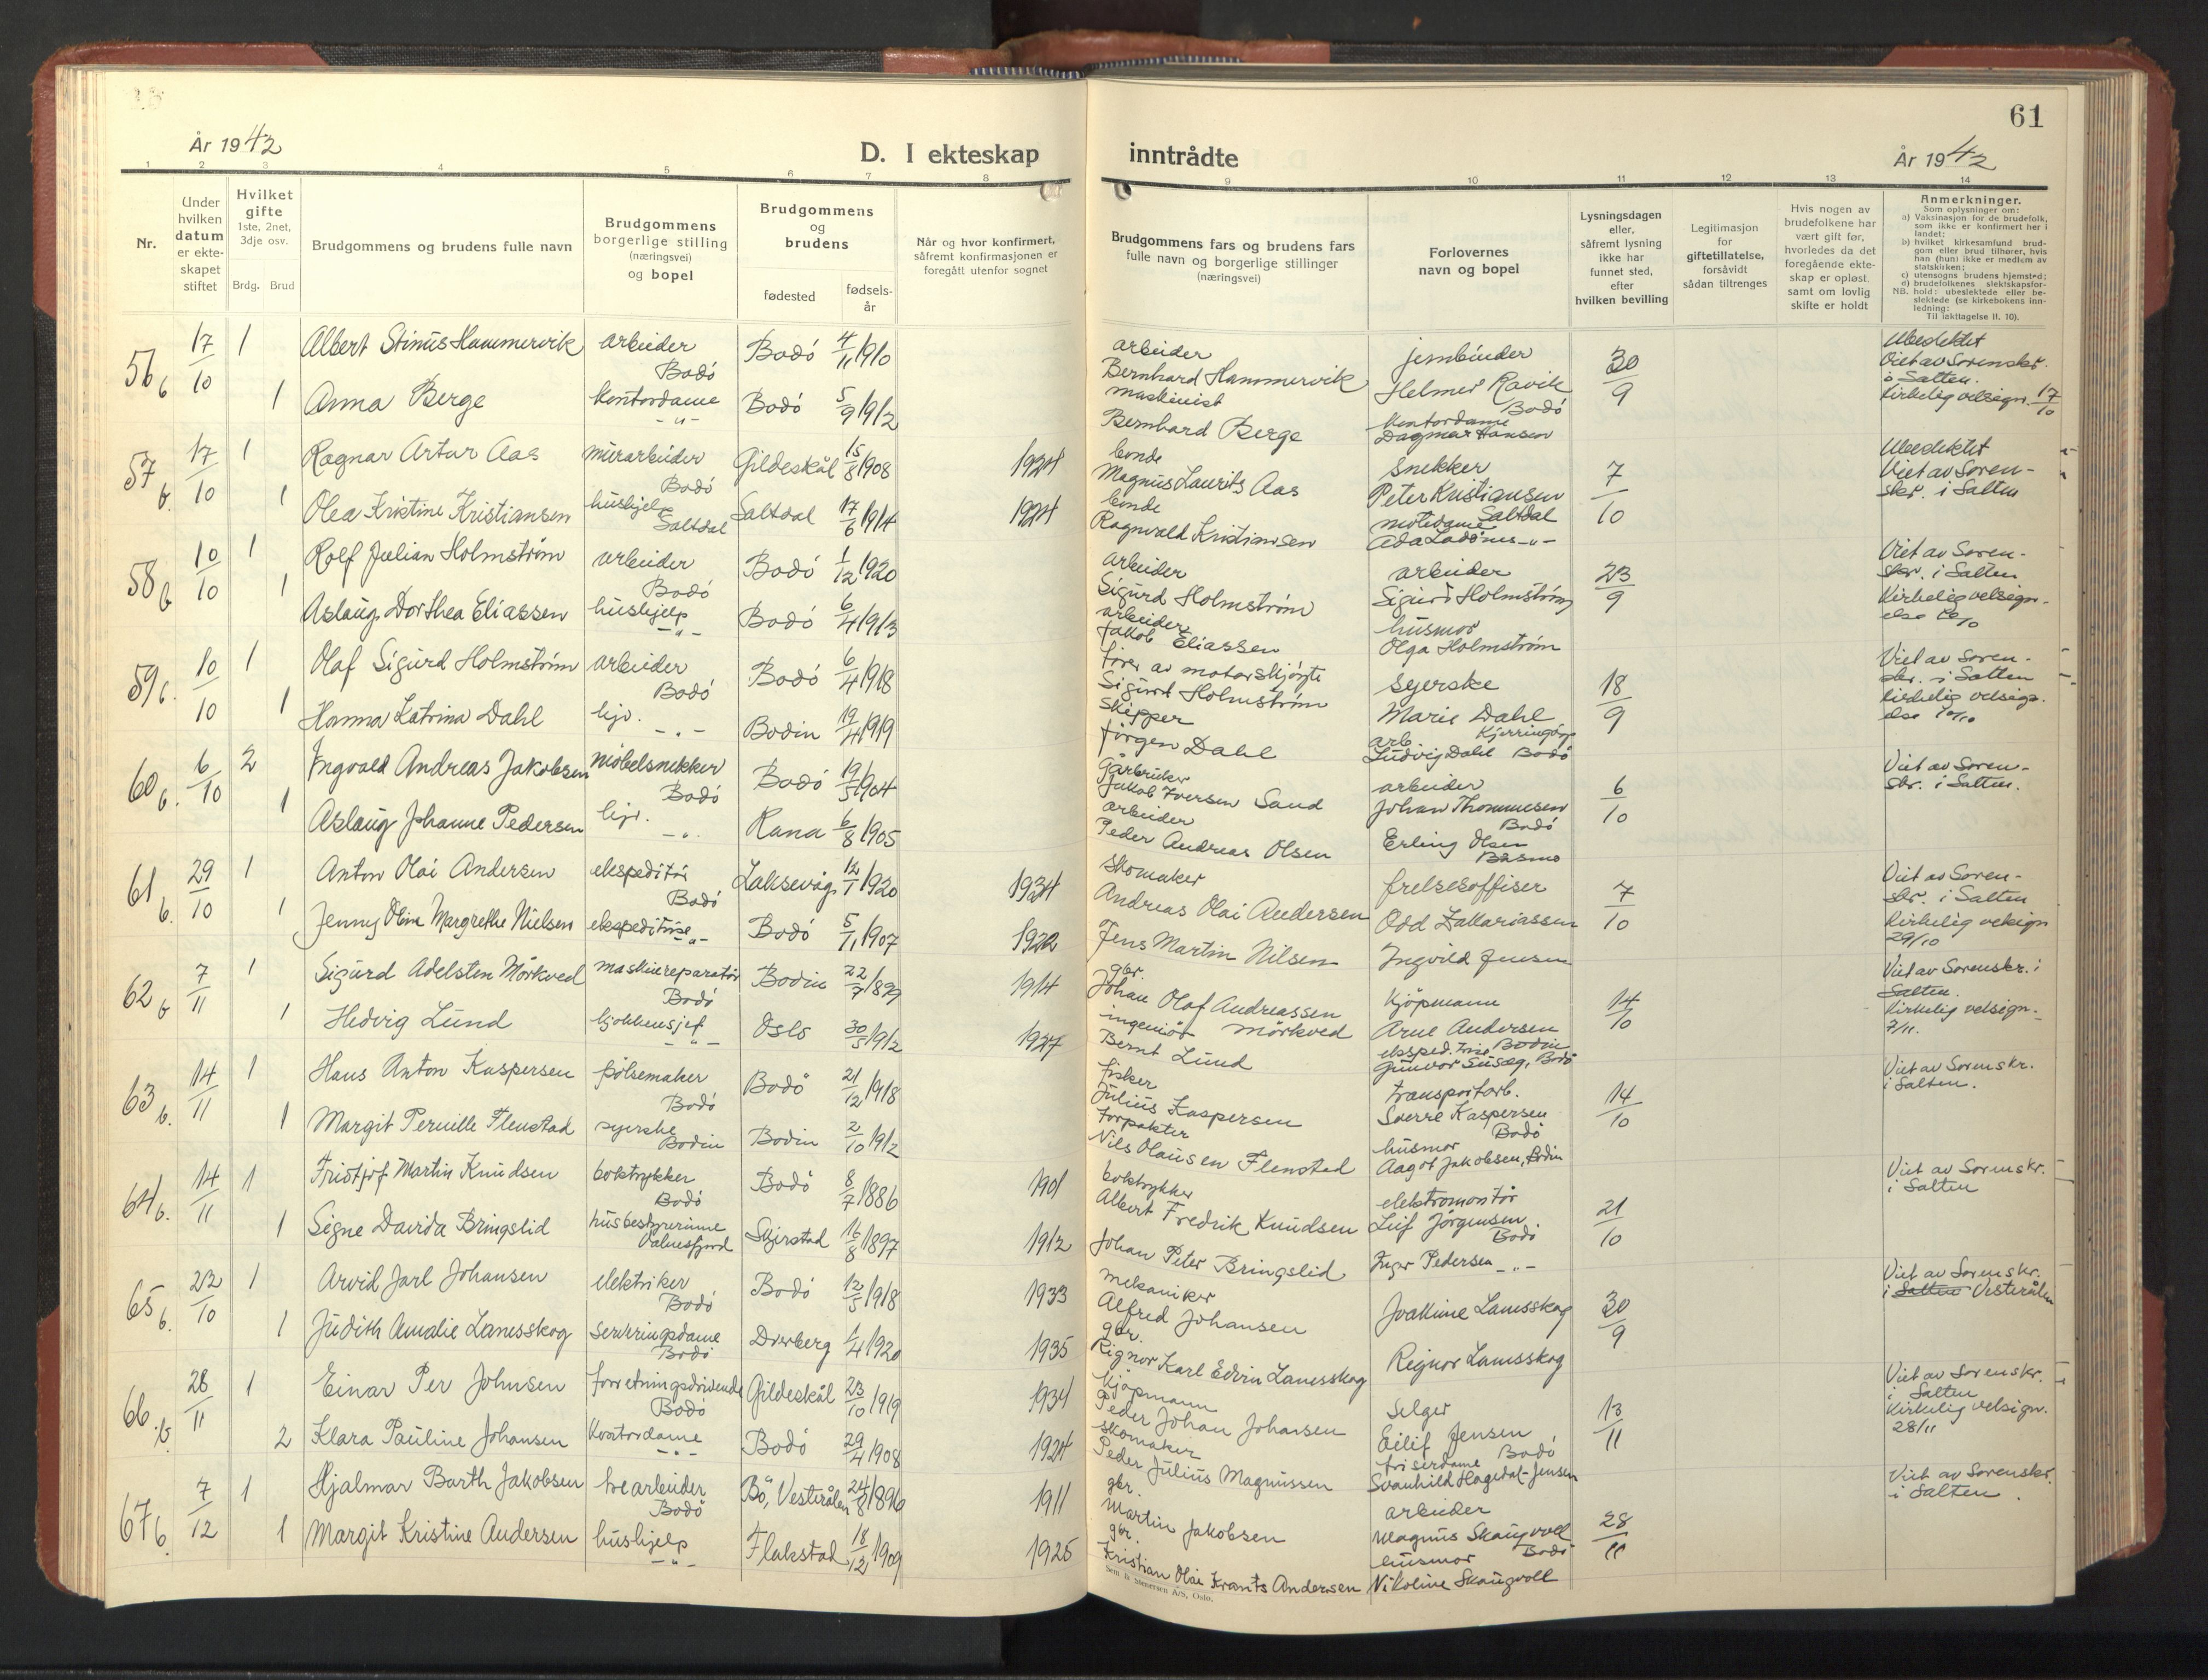 61
År 1942
D. I ekteskap inntrådte
År 1942
1 2 3 4 5 6 7 8 9 10 11 12 13 14
Nr.
Under hvilken datum er ekte-skapet stiftet
Hvilket gifte 1ste, 2net, 3dje osv.
Brdg. Brud
Brudgommens og brudens fulle navn
Brudgommens borgerlige stilling (næringsvei) og bopel
Brudgommens og brudens
fødested
fødsels-år
Når og hvor konfirmert, såfremt konfirmasjonen er foregått utenfor sognet
Brudgommens fars og brudens fars fulle navn og borgerlige stillinger (næringsvei)
Forlovernes navn og bopel
Lysningsdagen eller, såfremt lysning ikke har funnet sted, efter hvilken bevilling
Legitimasjon for giftetillatelse, forsåvidt sådan tiltrenges
Hvis nogen av brudefolkene har vært gift før, hvorledes da det foregående ekte-skap er opløst, samt om lovlig skifte er holdt
Anmerkninger.
Som oplysninger om:
a) Vaksinasjon for de brudefolk, som ikke er konfirmert her i landet;
b) hvilket kirkesamfund brud-gom eller brud tilhører, hvis han (hun) ikke er medlem av statskirken;
c) utensogns brudens hjemsted;
d) brudefolkenes slektskapsfor-hold: ubeslektede eller be-slektede (se kirkebokens inn-ledning:
NB. Til iakttagelse II. 10).
56 b. 17/10 1 Albert Stinus Hammervik arbeider Bodö Bodö 4/11 1910 arbeider Bernhard Hammervik jernbinder Helmer Ravik Bodö 30/9 Ubeslektet Viet av Sorenskr. i Salten. Kirkelig velsign. 17/10
1 Anna Berge kontordame -"- Bodö 5/9 1912 maskinist Bernhard Berge kontordame Dagmar Hansen
57 b. 17/10 1 Ragnar Artur Aas murarbeider Bodö Gildeskål 15/8 1908 1924 bonde Magnus Laurits Aas snekker Peter Kristiansen Saltdal 7/10 Ubeslektet Viet av Soren-skr. i Salten
1 Olea Kristine Kristiansen hushjelp Saltdal Saltdal 17/6 1914 bonde Ragnvald Kristiansen motedame -"-
58 b 10/10 1 Rolf Julian Holmström arbeider Bodö Bodö 1/12 1920 arbeider Sigurd Holmström arbeider Sigurd Holmström 23/9 Viet av Soren-skr. i Salten Kirkelig velsign-else 10/10
1 Aslaug Dorthea Eliassen hushjelp -"- Bodö 6/4 1913 arbeider Jakob Eliassen husmor Olga Holmström
59 b. 10/10 1 Olaf Sigurd Holmström arbeider Bodö Bodö 6/4 1918 fører av motorskjöyte Sigurd Holmström syerske Marie Dahl Kjerringöy 18/9 Viet av Soren-skr. i Salten kirkelig velsign-else 10/10
1 Hanna Katrina Dahl hjv. -"- Bodin 19/4 1919 skipper Jörgen Dahl arb Ludvig Dahl Bodö
60 b. 6/10 2 Ingvald Andreas Jakobsen möbelsnekker Bodö Bodö 19/5 1904 Jakob Iversen Sand arbeider Johan Thommesen Bodö 6/10 Viet av Soren-skr. i Salten.
1 Aslaug Johanne Pedersen hjv. -"- Rana 6/8 1905 arbeider Peder Andreas Olsen Erling Olsen Båsmo
61 b. 29/10 1 Anton Olai Andersen ekspeditör Bodö Laksevåg 12/1 1920 1934 skomaker Andreas Olai Andersen frelsesoffiser Odd Zakariassen 7/10 Viet av Soren-skr. i Salten Kirkelig velsign 29/10
1 Jenny Oline Margrethe Nielsen ekspeditrise -"- Bodö 5/11 1907 1922 Jens Martin Nilsen Ingvild Jensen
62 b 7/11 1 Sigurd Adelsten Mörkved maskinreparatör Bodö Bodin 22/7 1899 1914 gbr. Johan Olaf Andreassen Mörkved Kjöpmann Arne Andersen Bodin 14/10 Viet av Sorenskr. i Salten. Kirkelig velsign. 7/11.
1 Hedvig Lund kjökkensjef -"- Oslo 30/5 1912 1927 ingeniör Bernt Lund eksped.trise Bodö
63 b. 14/11 1 Hans Anton Kaspersen pölsemaker Bodö Bodö 21/12 1918 fisker Julius Kaspersen transportarb. Sverre Kaspersen Bodö 14/10 Viet av Sorenskr. i Salten.
1 Margit Pernille Flenstad syerske Bodin Bodin 2/10 1912 forpakter Nils Olausen Flenstad husmor Aagot Jakobsen, Bodin
64 b. 14/11 1 Fridtjof Martin Knudsen boktrykker Bodö Bodö 8/7 1886 1901 boktrykker Albert Fredrik Knudsen elektromontör Leif Jörgensen Bodö 21/10 Viet av Sorenskr. i Salten
1 Signe Davida Bringslid husbestyrerinne Valnesfjord Skjerstad 16/8 1897 1912 Johan Peter Bringslid Inger Pedersen -"-
65 b. 22/10 1 Arvid Jarl Johansen elektriker Bodö Bodö 12/5 1918 1933 mekaniker Alfred Johansen Joakime Lanesskog 30/9 Viet av Sorenskr. i Salten Vesterålen
1 Judith Amalie Lanesskog serveringsdame Bodö Dverberg 1/4 1920 1935 gbr. Rignor Karl Edvin Lanesskog Rignor Lanesskog
66 b. 28/11 1 Einar Per Johnsen forretningsdrivende Bodö Gildeskål 23/10 1919 1934 kjöpmann Peder Johan Johansen selger Eilif Jensen Bodö 13/11 Viet av Sorenskr. i Salten Kirkelig velsign. 28/11
2 Klara Pauline Johansen kontordame -"- Bodö 29/4 1908 1924 skomaker Peder Julius Magnussen friserdame Svanhild Hagedal-Jensen
67 b. 7/12 1 Hjalmar Barth Jakobsen trearbeider Bodö Bö, Vesterålen 24/8 1896 1911 gbr. Martin Jakobsen arbeider Magnus Skaugvoll Bodö 28/11 Viet av Sorenskr. i Salten.
1 Margit Kristine Andersen hushjelp -"- Flakstad 18/12 1909 1925 gbr. Kristian Olai Krants Andersen husmor Nikoline Skaugvoll
Sem & Stenersen A/S, Oslo.